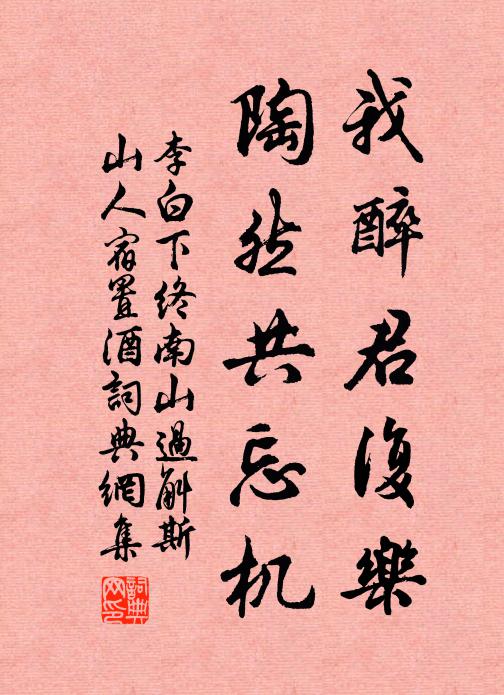 我醉君復樂
陶然共忘机
李白下終南山過斛斯
山人宿置酒詞典網集
詞典網印